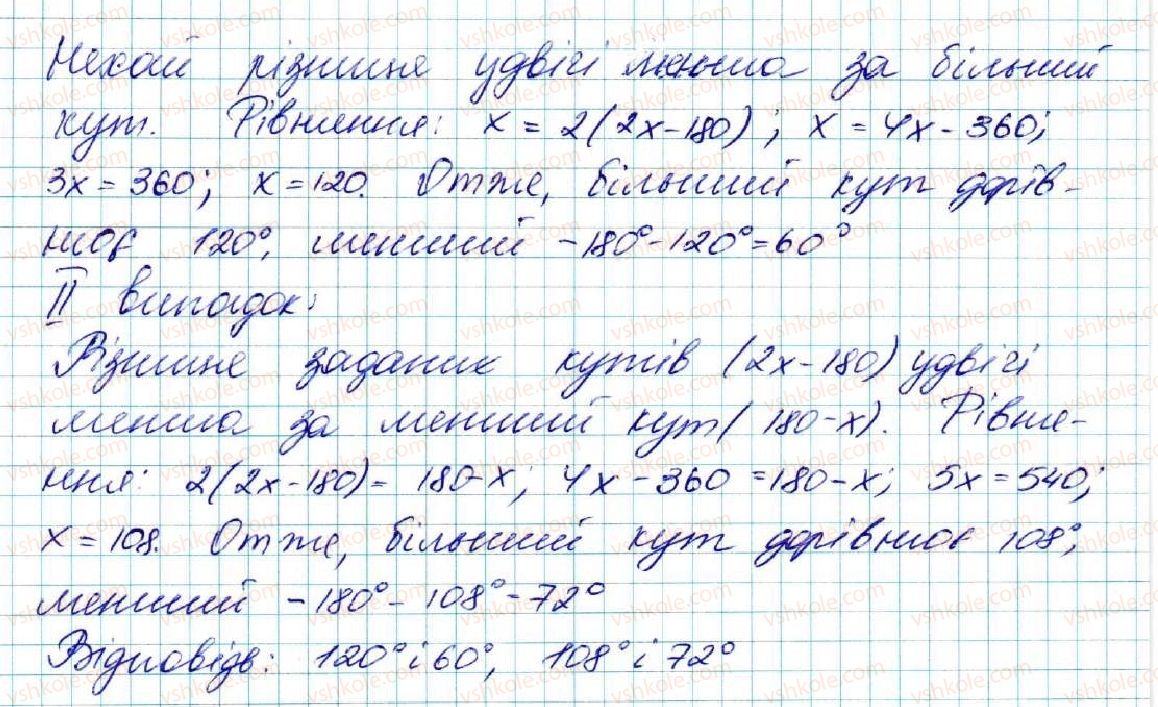 Нехай різниця удвічі менша за більший
кут. Рівняння: x = 2(2x-180); x = 4x - 360;
3x = 360; x = 120. Отже, більший кут дорів-
нює 120°, менший - 180° - 120° = 60°
II випадок:
Різниця заданих кутів (2x - 180) удвічі
менша за менший кут (180 - x). Рівня-
ння: 2(2x - 180) = 180 - x; 4x - 360 = 180 - x; 5x = 540;
x = 108. Отже, більший кут дорівнює 108°,
менший - 180° - 108° - 72°
Відповідь: 120° і 60°, 108° і 72°